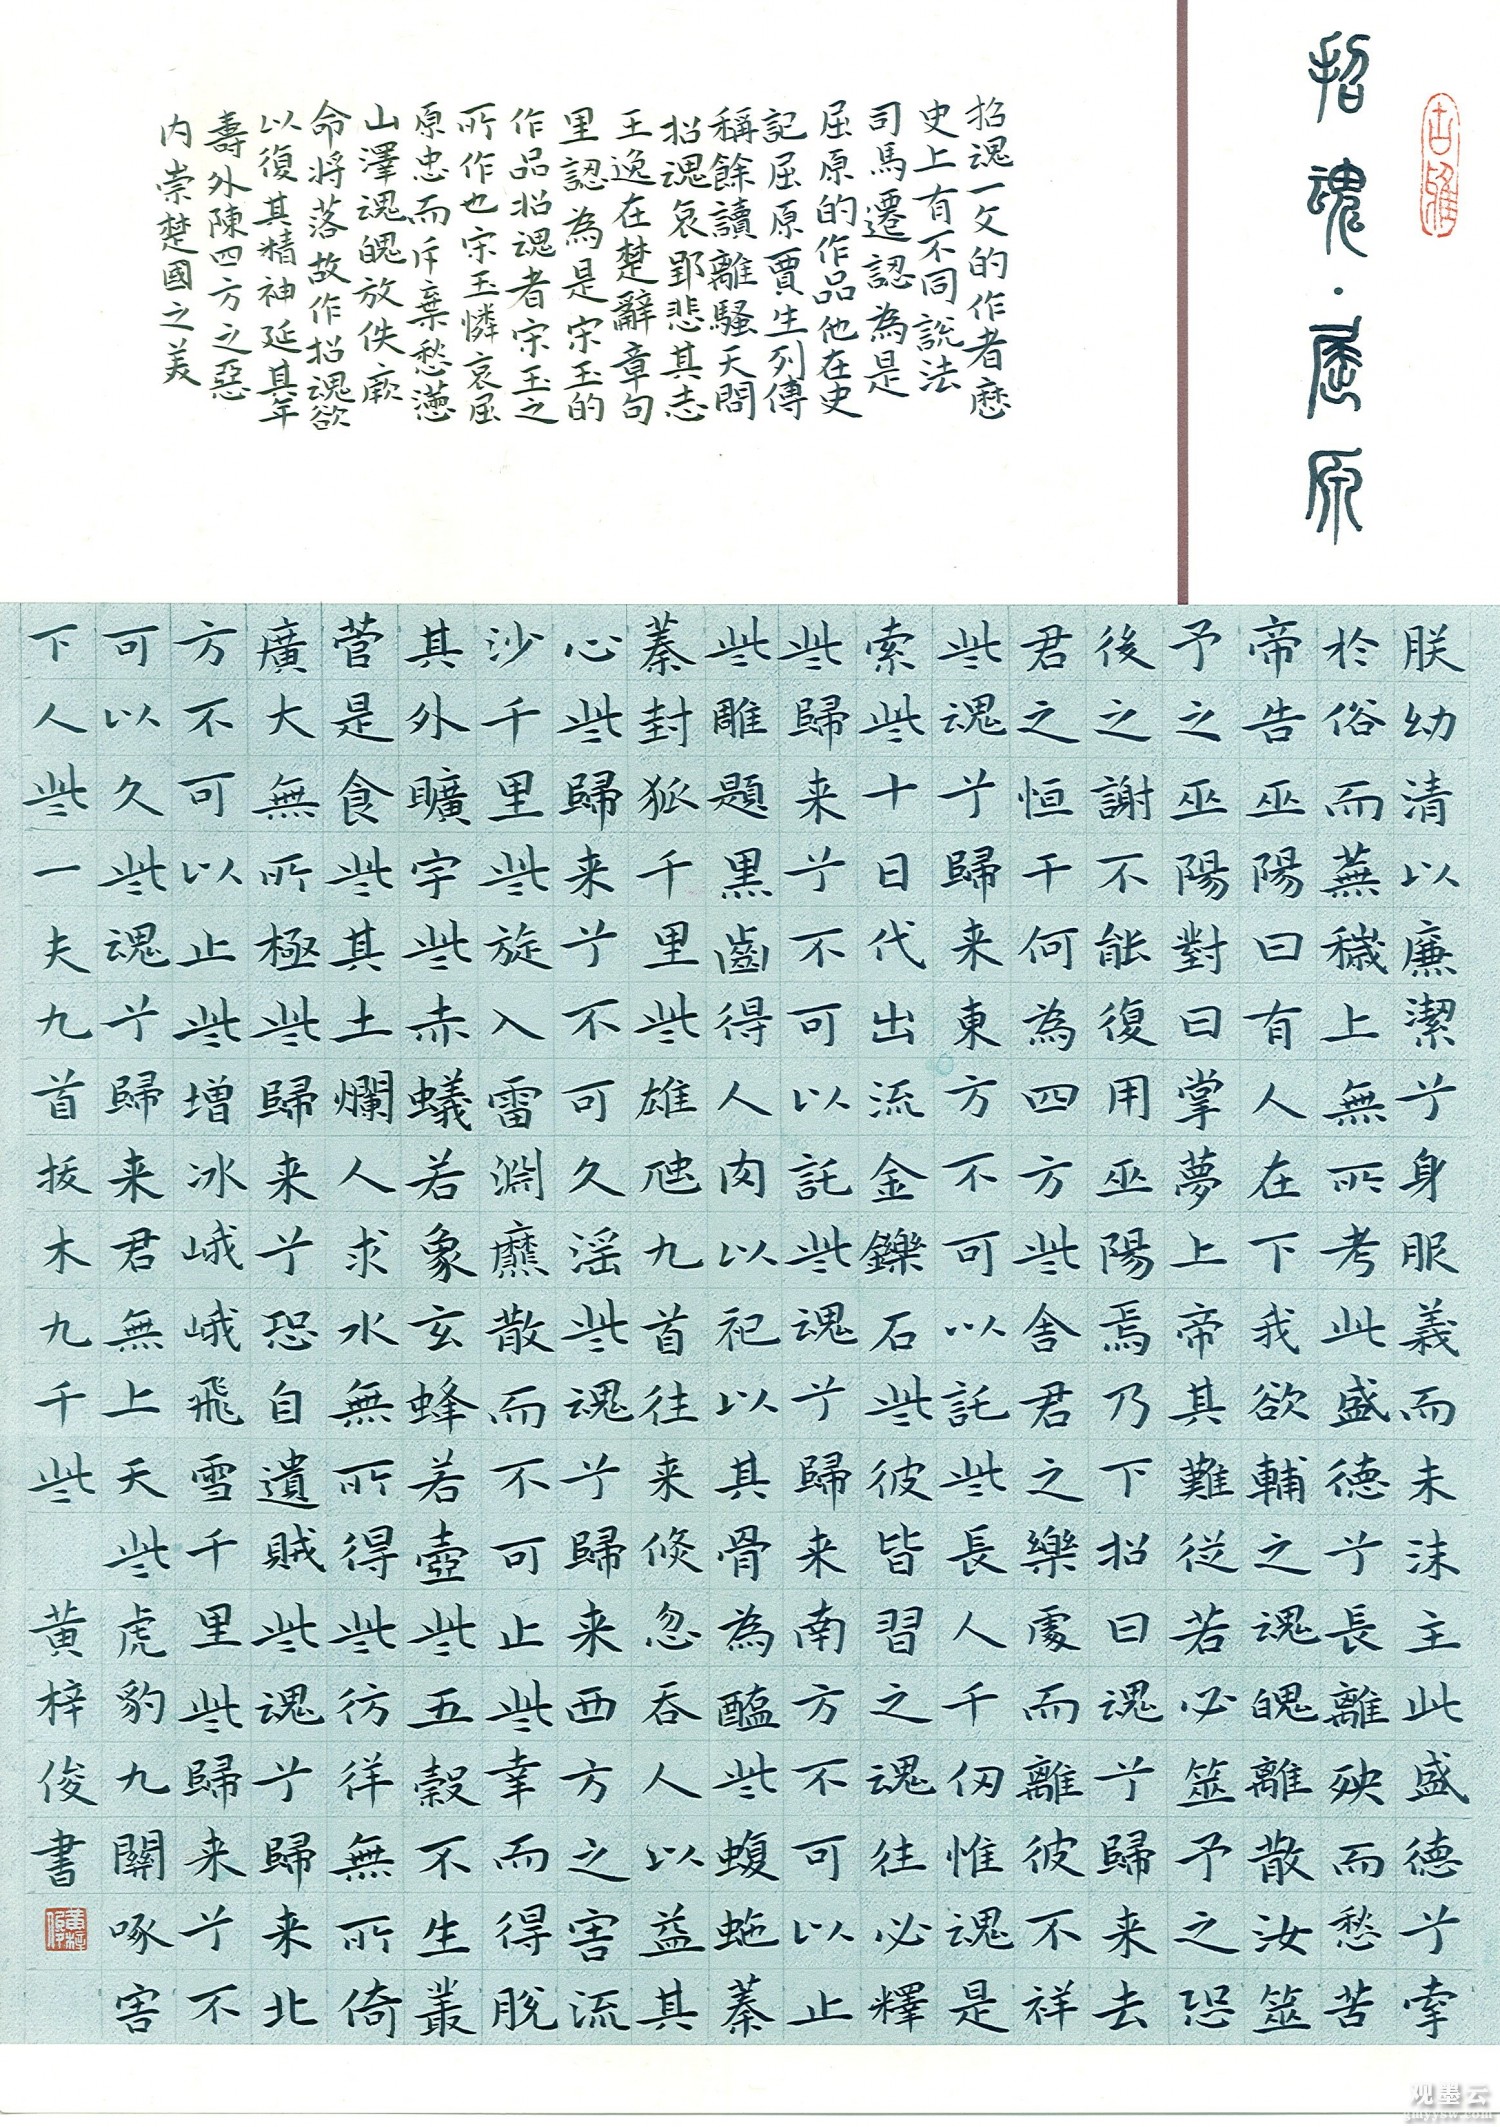 古雅
招魂·屈原
招魂一文的作者歷
史上有不同說法
司馬遷認為是
屈原的作品他在史
記屈原賈生列傳
稱餘讀離騷天問
招魂哀郢悲其志
王逸在楚辭章句
里認為是宋玉的
作品招魂者宋玉之
所作也宋玉憐哀屈
原忠而斥棄愁懣
山澤魂魄放佚厥
命將落故作招魂欲
以復其精神延其年
壽外陳四方之惡
内崇楚國之美
朕幼清以廉潔兮身服義而未沫主此盛德兮牽
於俗而蕪穢上無所考此盛德兮長離殃而愁苦
帝告巫陽曰有人在下我欲輔之魂魄離散汝筮
予之巫陽對曰掌夢上帝其難從若必筮予之恐
後之謝不能復用巫陽焉乃下招曰魂兮歸来去
君之恒干何為四方些舍君之樂處而離彼不祥
些魂兮歸来東方不可以託些長人千仞惟魂是
索些十日代出流金鑠石些彼皆習之魂往必釋
些歸来兮不可以託些魂兮歸来南方不可以止
些雕題黑齒得人肉以祀以其骨為醢些蝮蛇蓁
蓁封狐千里些雄虺九首往来倏忽吞人以益其
心些歸来兮不可久淫些魂兮歸来西方之害流
沙千里些旋入雷淵爢散而不可止些幸而得脫
其外曠宇些赤蟻若象玄蜂若壺些五穀不生叢
菅是食些其土爛人求水無所得些彷徉無所倚
廣大無所極些歸来兮恐自遺賊些魂兮歸来北
方不可以止些增冰峨峨飛雪千里些歸来兮不
可以久些魂兮歸来君無上天些虎豹九關啄害
下人些一夫九首拔木九千些 黄梓俊書
黄梓俊
观墨云